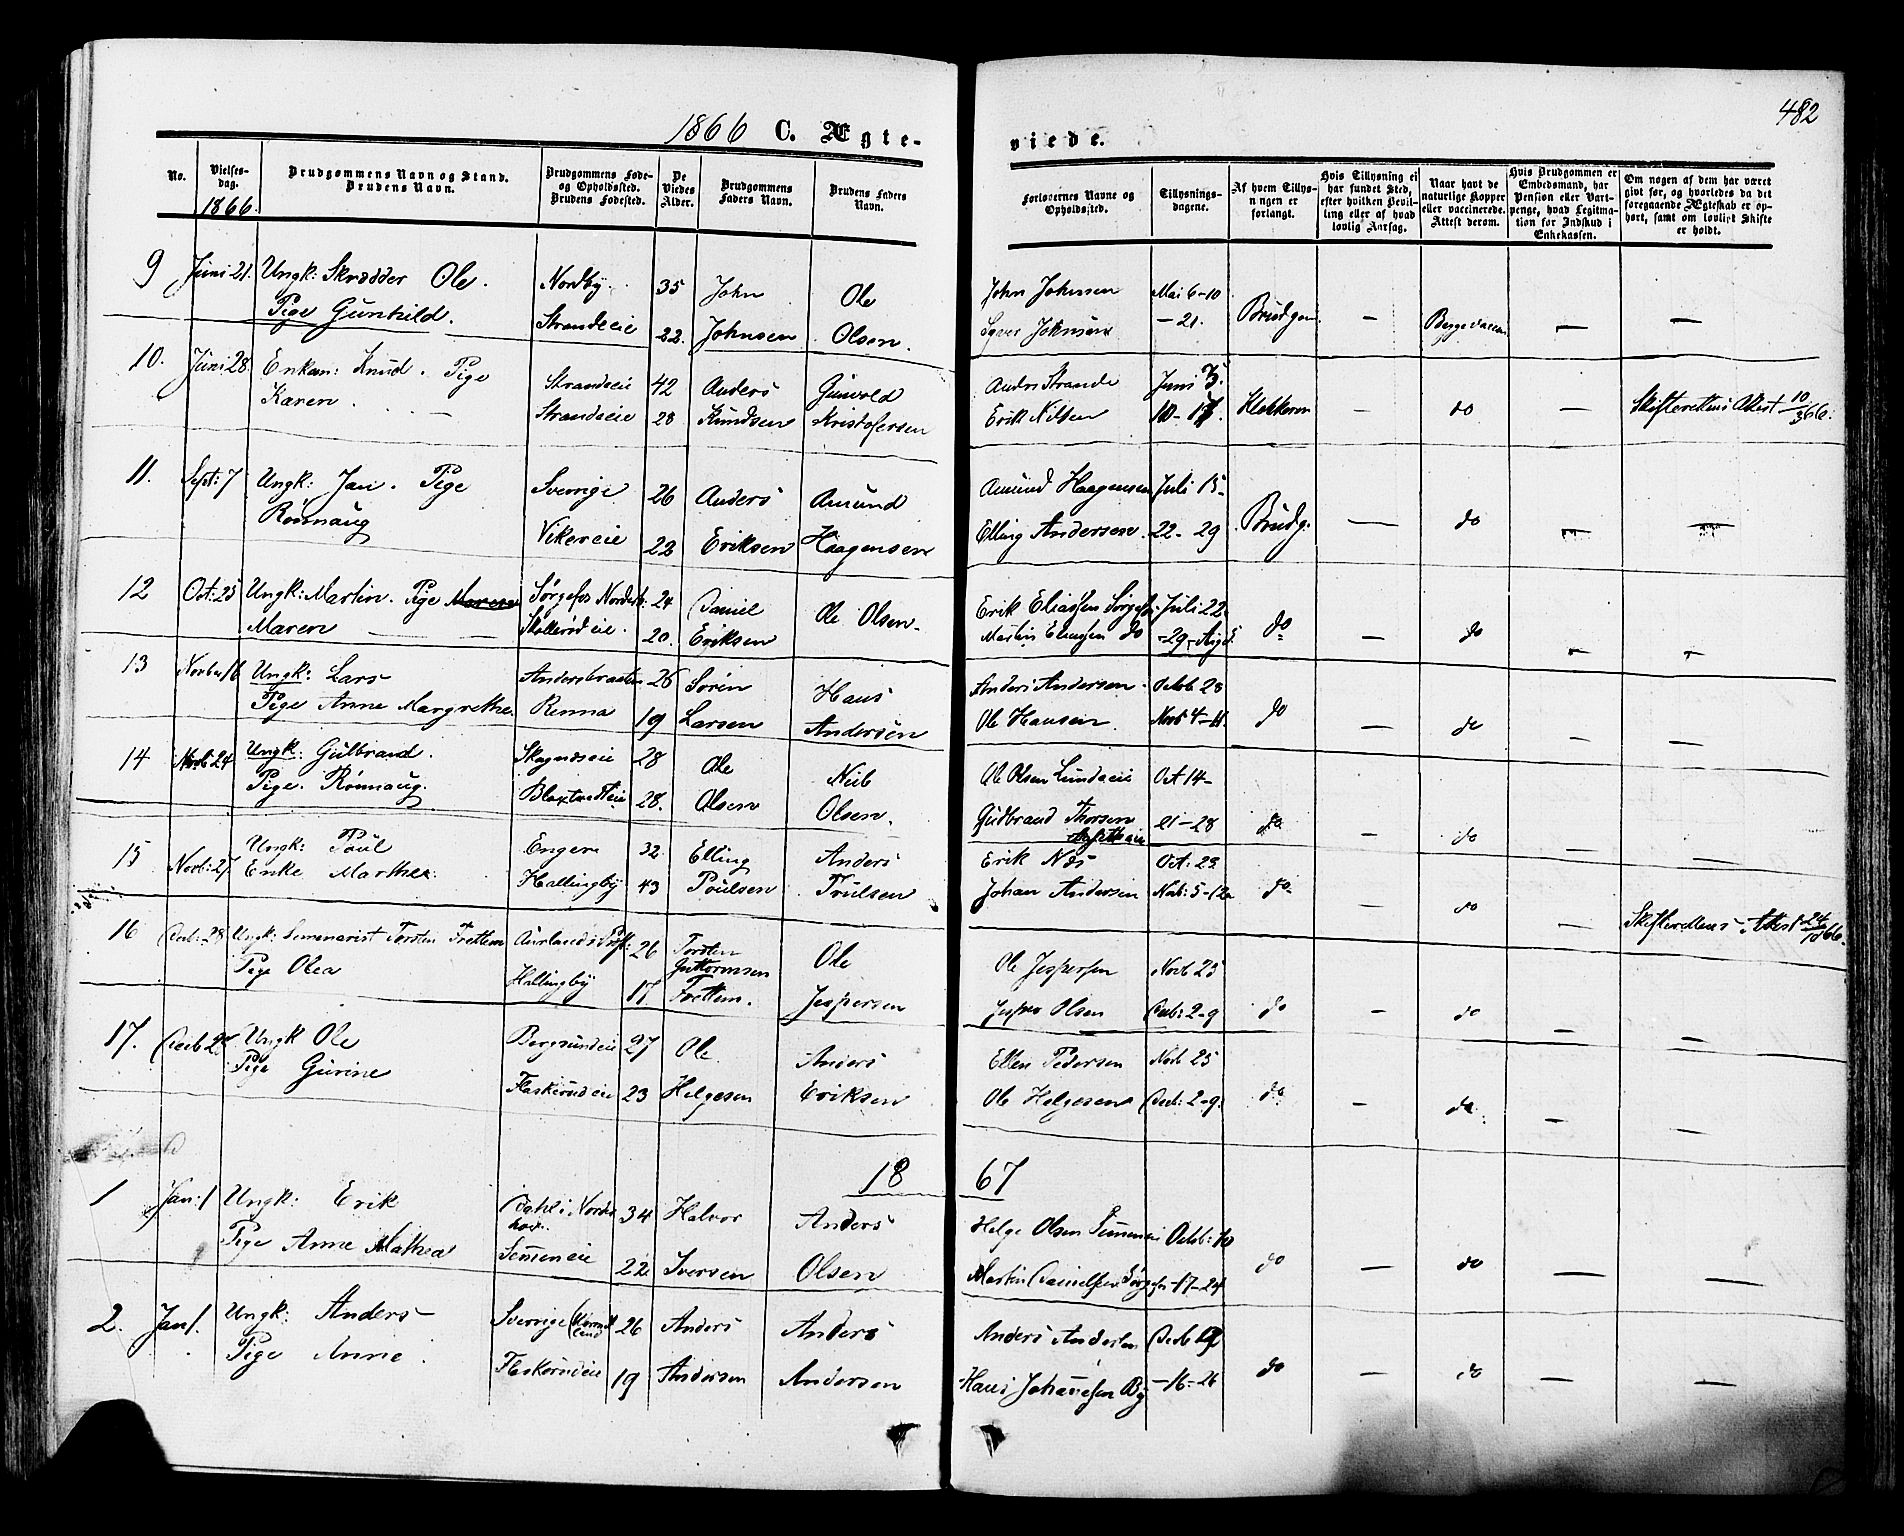 1866 C. Ægte-
viede.
482
No.
Vielses-
dag.
1866.
Brudgommens Navn og Stand.
Brudens Navn.
Brudgommens Føde-
og Opholdssted.
Brudens Fødested.
De
Viedes
Alder.
Brudgommens
Faders Navn.
Brudens Faders
Navn.
Forlovernes Navne og
Opholdssted.
Tillysnings-
dagene.
Af hvem Tillys-
ningen er
forlangt.
Hvis Tillysning ei
har fundet Sted,
efter hvilken Bevil-
ling eller af hvad
lovlig Aarsag.
Naar havt de
naturlige Kopper
eller vaccinerede.
Attest derom.
Hvis Brudgommen er
Embedsmand, har
Pension eller Vart-
penge, hvad Legitima-
tion for Indskud i
Enkekassen.
Om nogen af dem har været
gift før, og hvorledes da det
foregaaende Ægteskab er op-
hørt, samt om lovligt Skifte
er holdt.
9 Juni 21. Ungk: Skrædder Ole. Nordby 35 John Ole John Johnsen Mai 6-10
Pige Gunhild. Strandeie 22. Johnsen Olsen. Johnsen -21. Brudgom — Begge vaccin — —
10. Juni 28. Enkem: Knud. Pige Strandeie 42 Anders Gunvold Strande Juni 3.
Karen. — Strandeie 28 Knudsen Kristofersen Erik Nilsen 10-17. Klokkeren — do — Skifterettens Attest 10/3 66.
11. Sept: 7 Ungk: Jan. Pige Sverrige 26 Anders Amund Amund Haagensen Juli 15-
Rønnaug Vikereie 22 Eriksen Haagensen Elling Andersen 22-29 Brudg. — do — —
12 Oct: 25 Ungk: Martin. Pige Maren Sørgefos 24 Daniel Ole Olsen. Erik Eliassen Juli 22
Maren — 20. Eriksen Martin do -29-Aug 5. do — do — —
13 Novbr 16 Ungk: Lars Andersbraaten 26 Sørin Hans Anders Andersen Octob 28
Pige Anne Margrethe. Renna 19 Larsen Andersen Ole Hansen Novb 4-11. do — do — —
14 Novb: 24 Ungk: Gulbrand. 28 Ole Ole Olsen Lundeeie Oct 14-
Pige. Rønnaug. 28. Olsen Olsen. Gudbrand Thorsen 21-28 do — do — —
15 Novb: 27 Ungk: Poul Engen 32. Elling Anders Erik Næs Oct. 29
Enke Marthe. Hallingby 43 Poulsen Trulsen Johan Andersen Novb: 5-12 do — do — Skifterettens Attest 24/10 66.
16 Decb: 28 Ungk: Seminarist Torsten Frettem Aurlands 26 Torsten Guttormsen Ole Ole Jespersen Novb 25
Pige Olea Hallingby 17. Frettem. Jespersen Jesper Olsen Decb: 2-9 do — do — —
17. Decb 28 Ungk Ole Bergsundeie 27 Ole Anders Ellen Pedersen Novb 25
Pige Gurine Flaskerudeie 23 Helgesen Eriksen Ole Helgesen Decb: 2-9. do — do — —
1867
1 Jan: 1 Ungk: Erik Dahl i Norder-
hov. 34 Halvor Anders Helge Olsen Octob: 10
Pige Anne Mathea 22 Iversen Olsen Martin Danielsen -17-24 do — do — —
2. Jan 1. Ungk: Anders Sverrige 26 Anders Anders Anders Andersen Decb
Pige Anne. Flaskerudeie 19 Andersen Andersen Hans Johannesen By -16-26 do — do — —